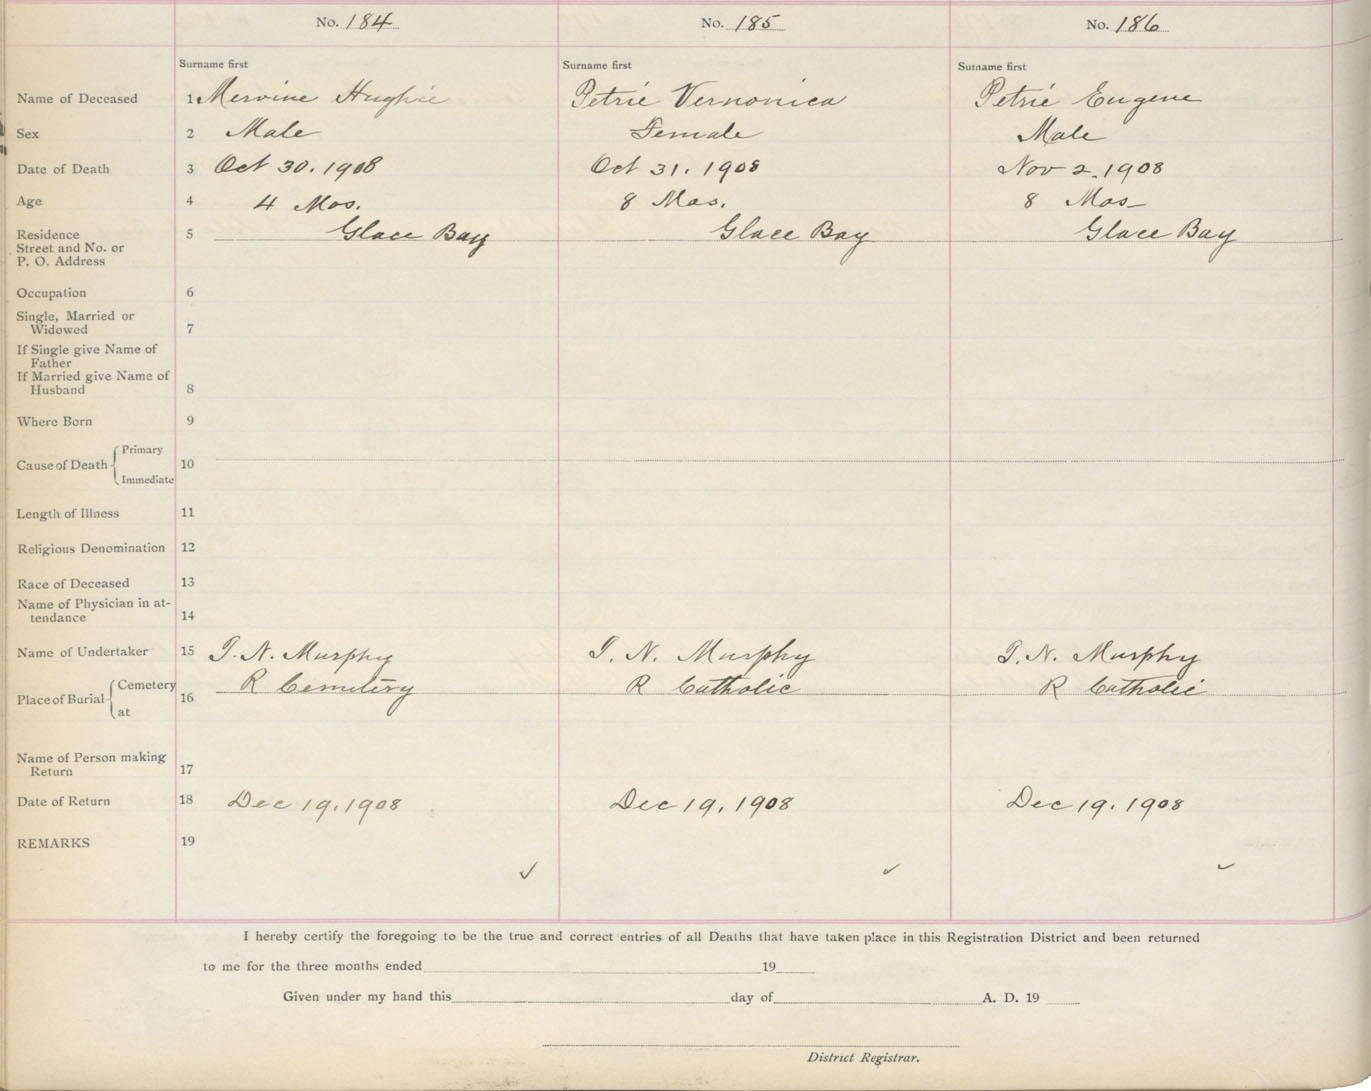 No. 184 No. 185 No. 186
Surname first Surname first Surname first
Name of Deceased 1 Mervine Hughie Petrie Vernonica Petrie Eugene
Sex 2 Male Female Male
Date of Death 3 Oct 30. 1908 Oct 31. 1908 Nov 2. 1908
Age 4 4 Mos. 8 Mos. 8 Mos
Residence 5 Glace Bay Glace Bay Glace Bay
Street and No. or
P. O. Address
Occupation 6
Single, Married or
Widowed 7
If Single give Name of
Father
If Married give Name of
Husband 8
Where Born 9
Cause of Death { Primary
10
Immediate
Length of Illness 11
Religious Denomination 12
Race of Deceased 13
Name of Physician in at-
tendance 14
Name of Undertaker 15 T. N. Murphy T. N. Murphy T. N. Murphy
Place of Burial { Cemetery 16 R Cemetery R Catholic R Catholic
at
Name of Person making
Return 17
Date of Return 18 Dec 19, 1908 Dec 19, 1908 Dec 19. 1908
REMARKS 19
✓ ✓ ✓
I hereby certify the foregoing to be the true and correct entries of all Deaths that have taken place in this Registration District and been returned
to me for the three months ended 19
Given under my hand this day of A. D. 19
District Registrar.